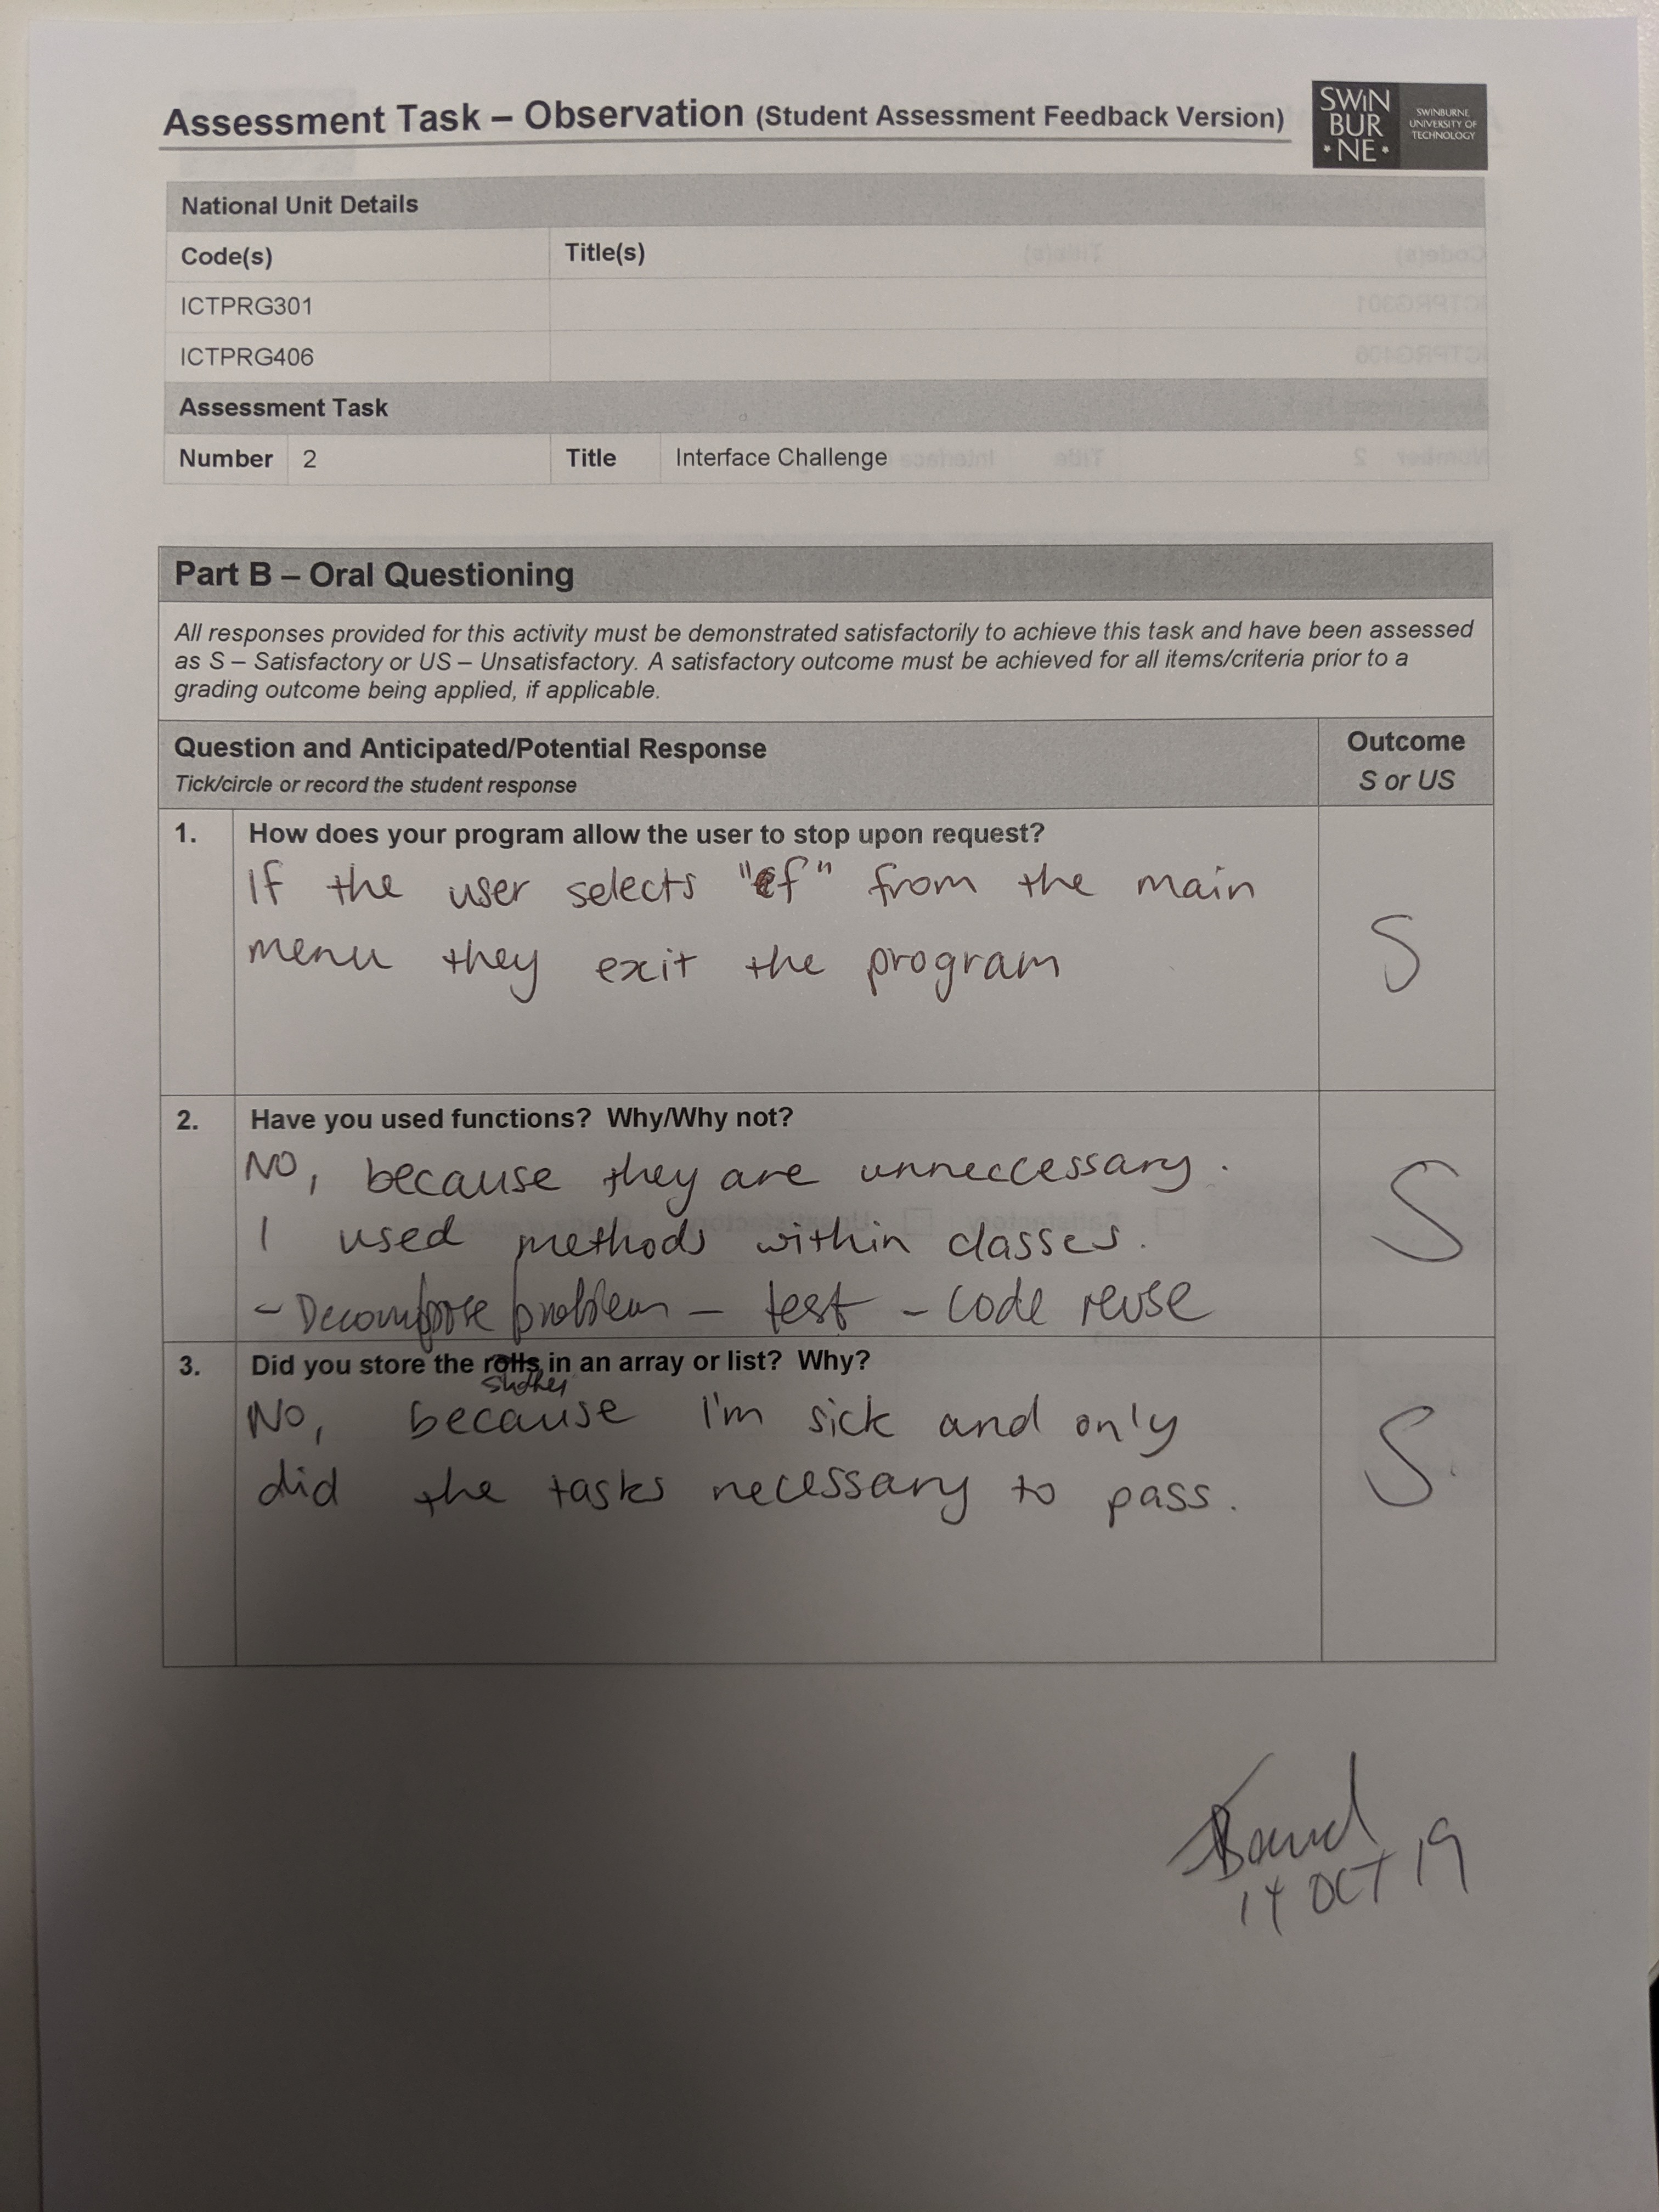 Assessment Task – Observation (Student Assessment Feedback Version)
SWiN
BUR
* NE *
SWINBURNE
UNIVERSITY OF
TECHNOLOGY
National Unit Details
Code(s) Title(s)
ICTPRG301
ICTPRG406
Assessment Task
Number 2 Title Interface Challenge
Part B – Oral Questioning
All responses provided for this activity must be demonstrated satisfactorily to achieve this task and have been assessed
as S – Satisfactory or US – Unsatisfactory. A satisfactory outcome must be achieved for all items/criteria prior to a
grading outcome being applied, if applicable.
Question and Anticipated/Potential Response
Tick/circle or record the student response
Outcome
S or US
1. How does your program allow the user to stop upon request?
If the user selects "f" from the main
menu they exit the program
S
2. Have you used functions? Why/Why not?
NO, because they are unneccessary.
I used methods within classes.
- Decompose problem - test - code reuse
S
3. Did you store the rolls in an array or list? Why?
No, because I'm sick and only
did the tasks necessary to pass.
S
14 OCT 19